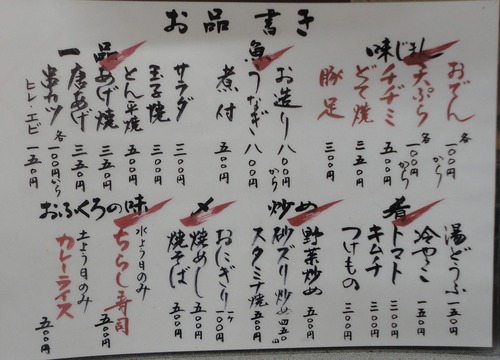 お品書き
味じまん
おでん 各一〇〇円から
天ぷら 各一〇〇円から
チヂミ 五〇〇円
どて焼 三五〇円
豚足 三〇〇円
魚
お造り 八〇〇円から
うなぎ 八〇〇円
煮付 五〇〇円
一品
サラダ 三〇〇円
玉子焼 三〇〇円
とん平焼 五五〇円
あげ焼 三五〇円
唐あげ 三五〇円
串カツ 各一〇〇円から
ヒレ・エビ 一五〇円
肴
湯どうふ 一五〇円
冷やっこ 一五〇円
トマト 三〇〇円
キムチ 三〇〇円
つけもの 三〇〇円
炒め
野菜炒め 五〇〇円
砂ズリ炒め 四五〇円
スタミナ焼 五〇〇円
〆
おにぎり 一ヶ一〇〇円
焼めし 五〇〇円
焼そば 五〇〇円
おふくろの味
水よう日のみ
ちらし寿司 五〇〇円
土よう日のみ
カレーライス 五〇〇円